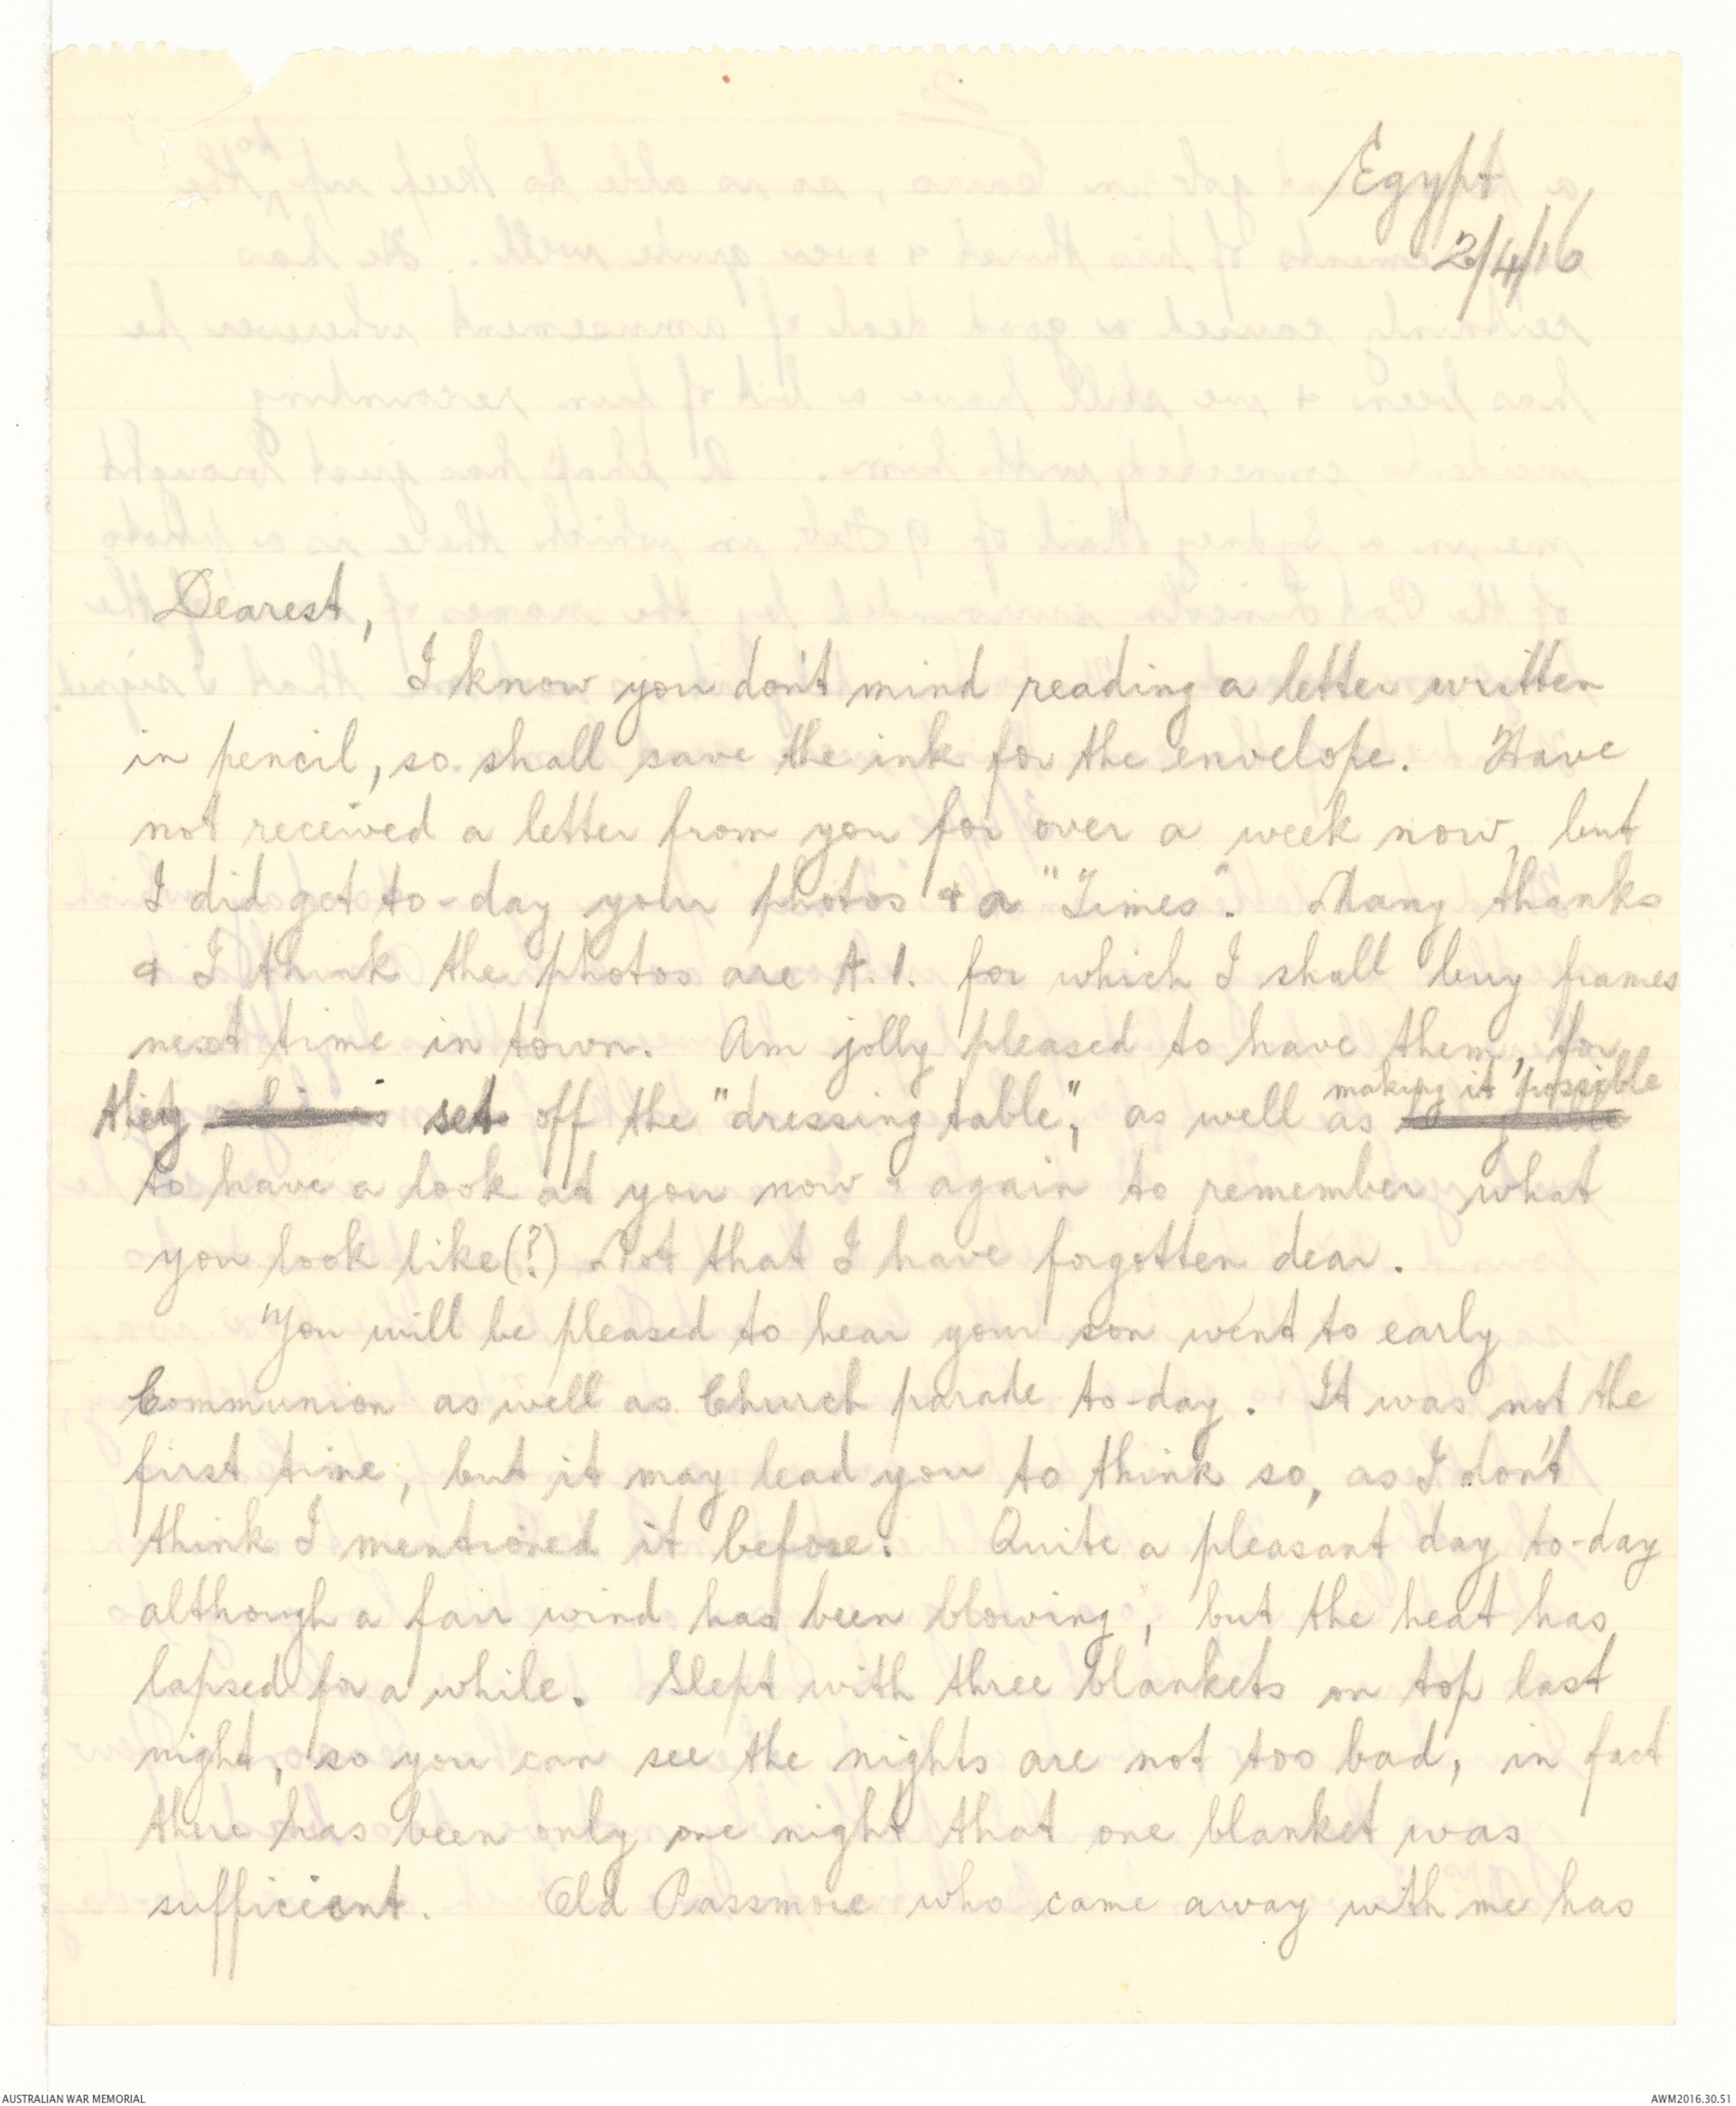 Egypt
2/4/16
Dearest,
I know you don't mind reading a letter written
in pencil, so shall save the ink for the envelope. Have
not received a letter from you for over a week now, but
I did get to-day your photos & a "Times". Many thanks
& I think the photos are A.1. for which I shall buy frames
next time in town. Am jolly pleased to have them, for
making it possible
they set off the "dressing table", as well as
to have a look at you now & again to remember what
you look like(?) Not that I have forgotten dear.
You will be pleased to hear your son went to early
Communion as well as Church parade to-day. It was not the
first time, but it may lead you to think so, as I don't
think I mentioned it before. Quite a pleasant day to-day
although a fair wind has been blowing, but the heat has
lapsed for a while. Slept with three blankets on top last
night, so you can see the nights are not too bad, in fact
there has been only one night that one blanket was
sufficient. Old Passmore who came away with me has
AUSTRALIAN WAR MEMORIAL
AWM2016.30.51